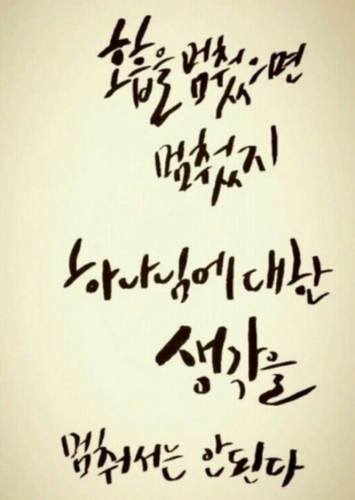 호흡을 멈췄으면
멈췄지
하나님에 대한
생각을
멈춰서는 안된다